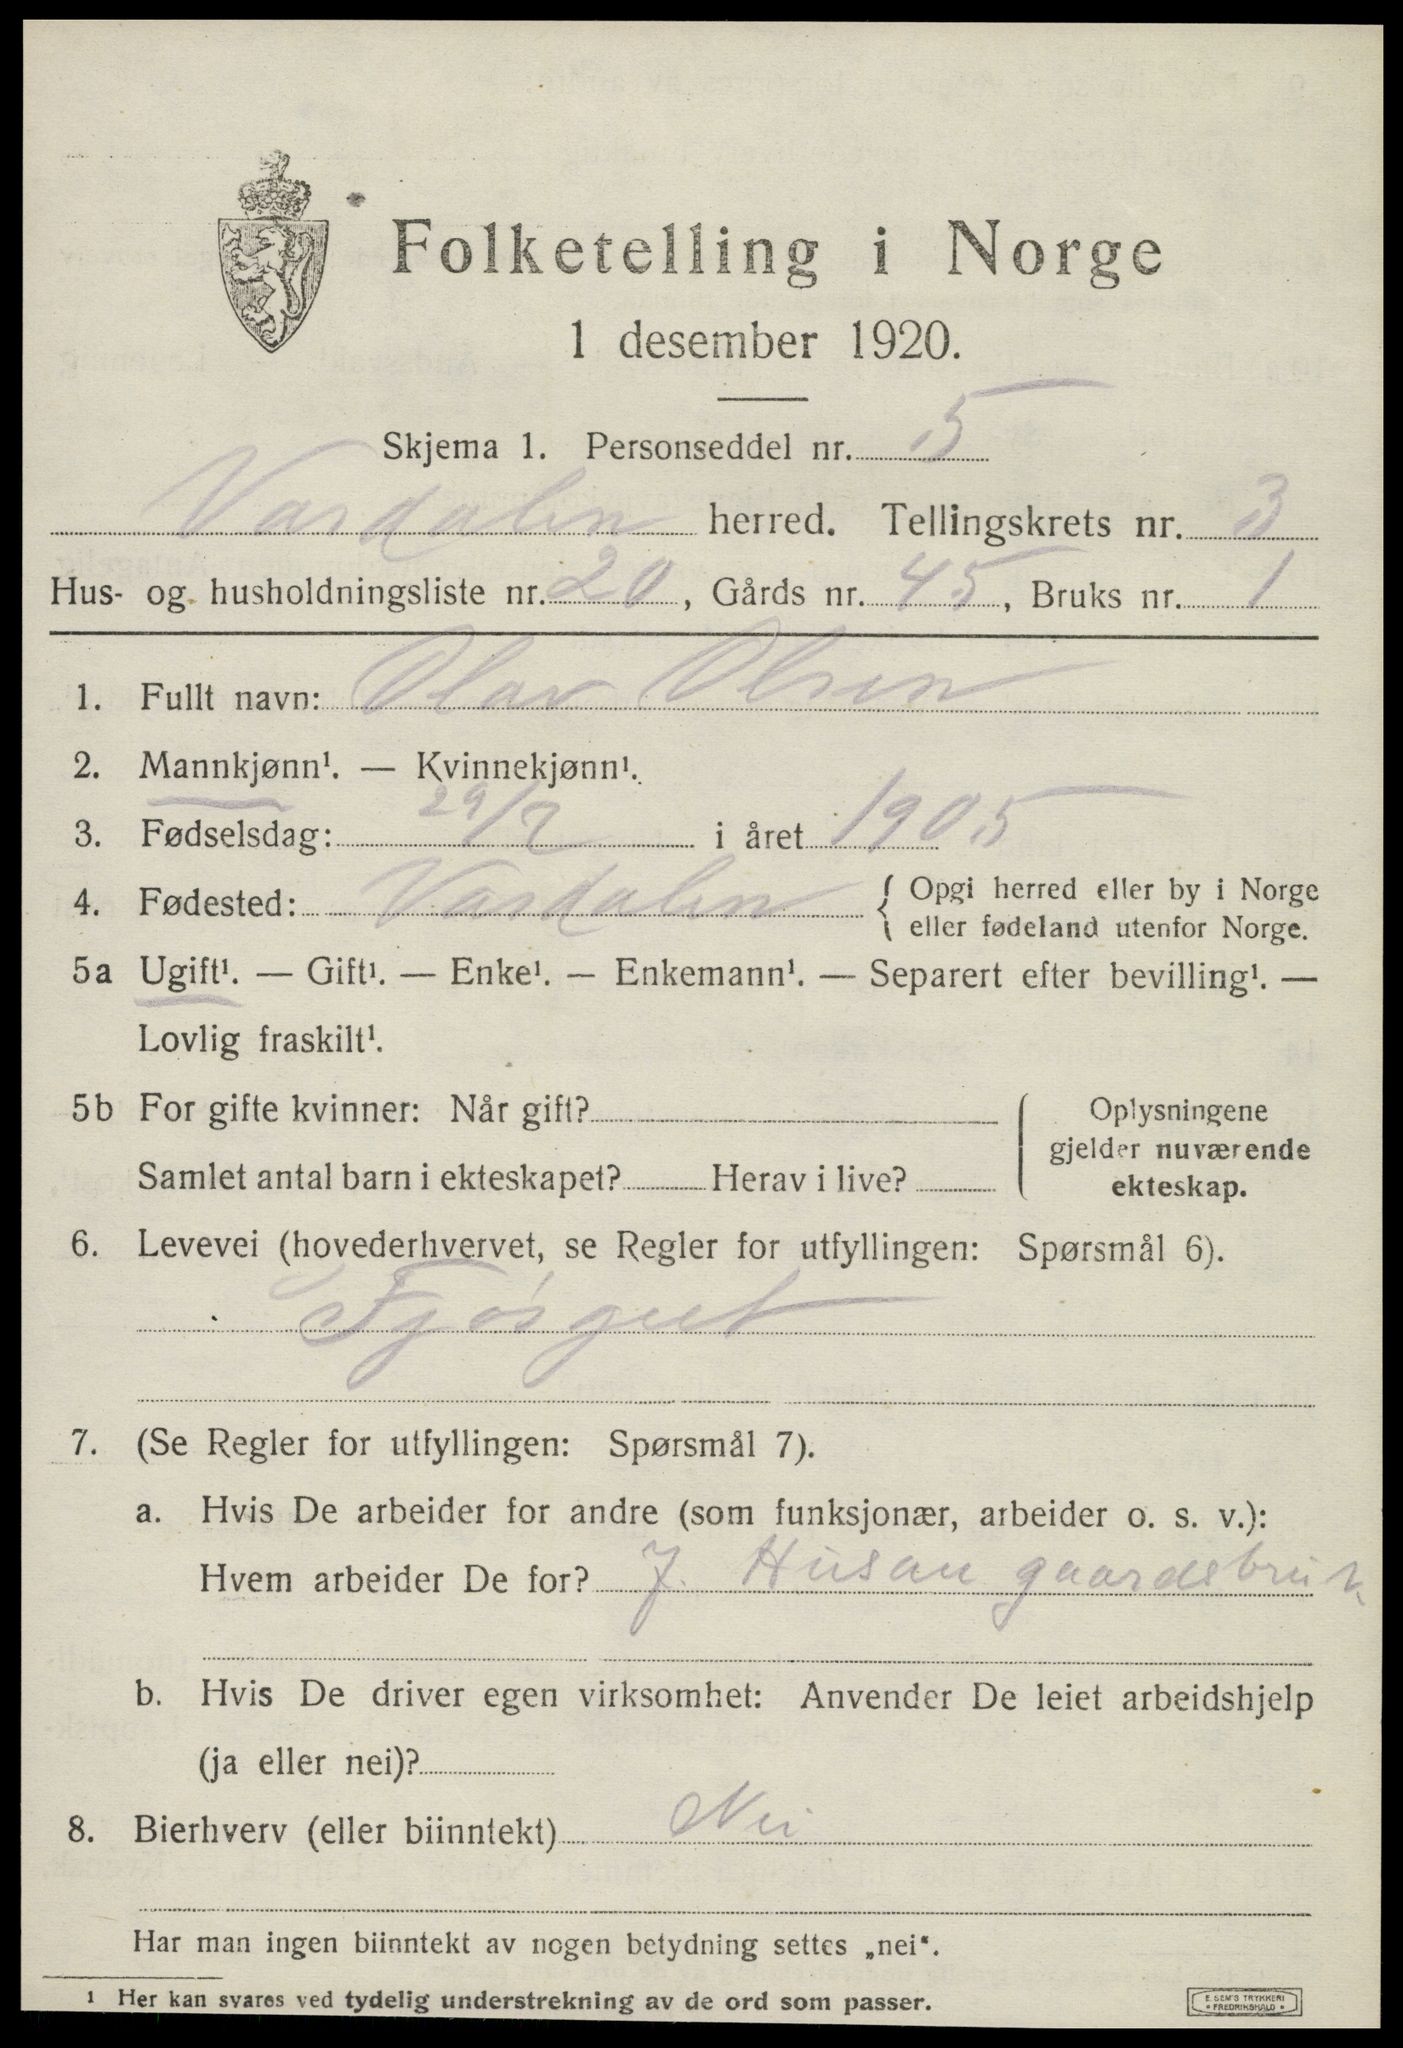 Folketelling i Norge
1 desember 1920.
Skjema 1. Personseddel nr. 5
Vardalen herred. Tellingskrets nr. 3
Hus- og husholdningsliste nr. 20, Gårds nr. 45, Bruks nr. 1
1. Fullt navn: Olav Olsen
2. Mannkjønn¹. — Kvinnekjønn¹.
3. Fødselsdag: 29/7 i året 1905
4. Fødested: Vardalen { Opgi herred eller by i Norge
eller fødeland utenfor Norge.
5a Ugift¹. — Gift¹. — Enke¹. — Enkemann¹. — Separert efter bevilling¹. —
Lovlig fraskilt¹.
5b For gifte kvinner: Når gift?
Samlet antal barn i ekteskapet? Herav i live?
Oplysningene
gjelder nuværende
ekteskap.
6. Levevei (hovederhvervet, se Regler for utfyllingen: Spørsmål 6).
Fjøsgut
7. (Se Regler for utfyllingen: Spørsmål 7).
a. Hvis De arbeider for andre (som funksjonær, arbeider o. s. v.):
Hvem arbeider De for? J. Husan gaardsbruk
b. Hvis De driver egen virksomhet: Anvender De leiet arbeidshjelp
(ja eller nei)?
8. Bierhverv (eller biinntekt) Nei
Har man ingen biinntekt av nogen betydning settes „nei“.
¹ Her kan svares ved tydelig understrekning av de ord som passer.
E. SEM'S TRYKKERI
FREDRIKSHALD